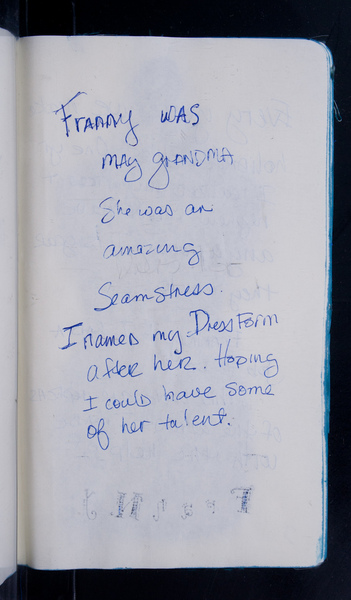 Franny was
my grandma
She was an
amazing
Seamstress.
I named my Dress Form
after her. Hoping
I could have some
of her talent.